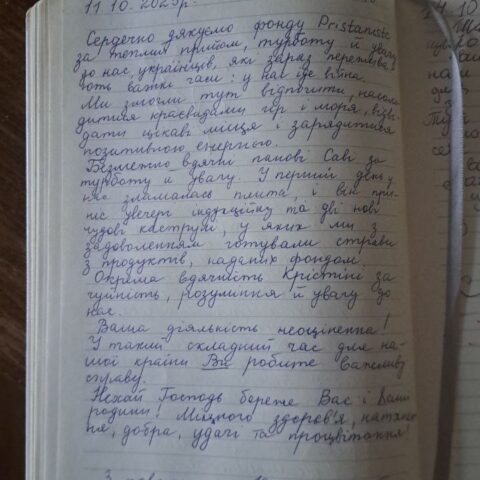 11.10.2025р.
Сердечно дякуємо фонду Pristanište
за теплий прийом, турботу й увагу
до нас, українців, які зараз пережива-
ють важкі часи: у нас іде війна.
Ми змогли тут відпочити, насоло-
дитися краєвидами гір і моря, відві-
дати цікаві місця і зарядитися
позитивною енергією.
Безмежно вдячні панові Саві за
турботу й увагу. У перший день у
нас зламалась плита, і він при-
ніс увечері індукційку та дві нові
чудові каструлі, у яких ми з
задоволенням готували страви
з продуктів, наданих фондом.
Окрема вдячність Крістіні за
чуйність, розуміння й увагу до
нас.
Ваша діяльність неоціненна!
У такий складний час для на-
шої країни Ви робите важливу
справу.
Нехай Господь береже Вас і Ваші
родини! Міцного здоров'я, натхнен-
ня, добра, удачі та процвітання!